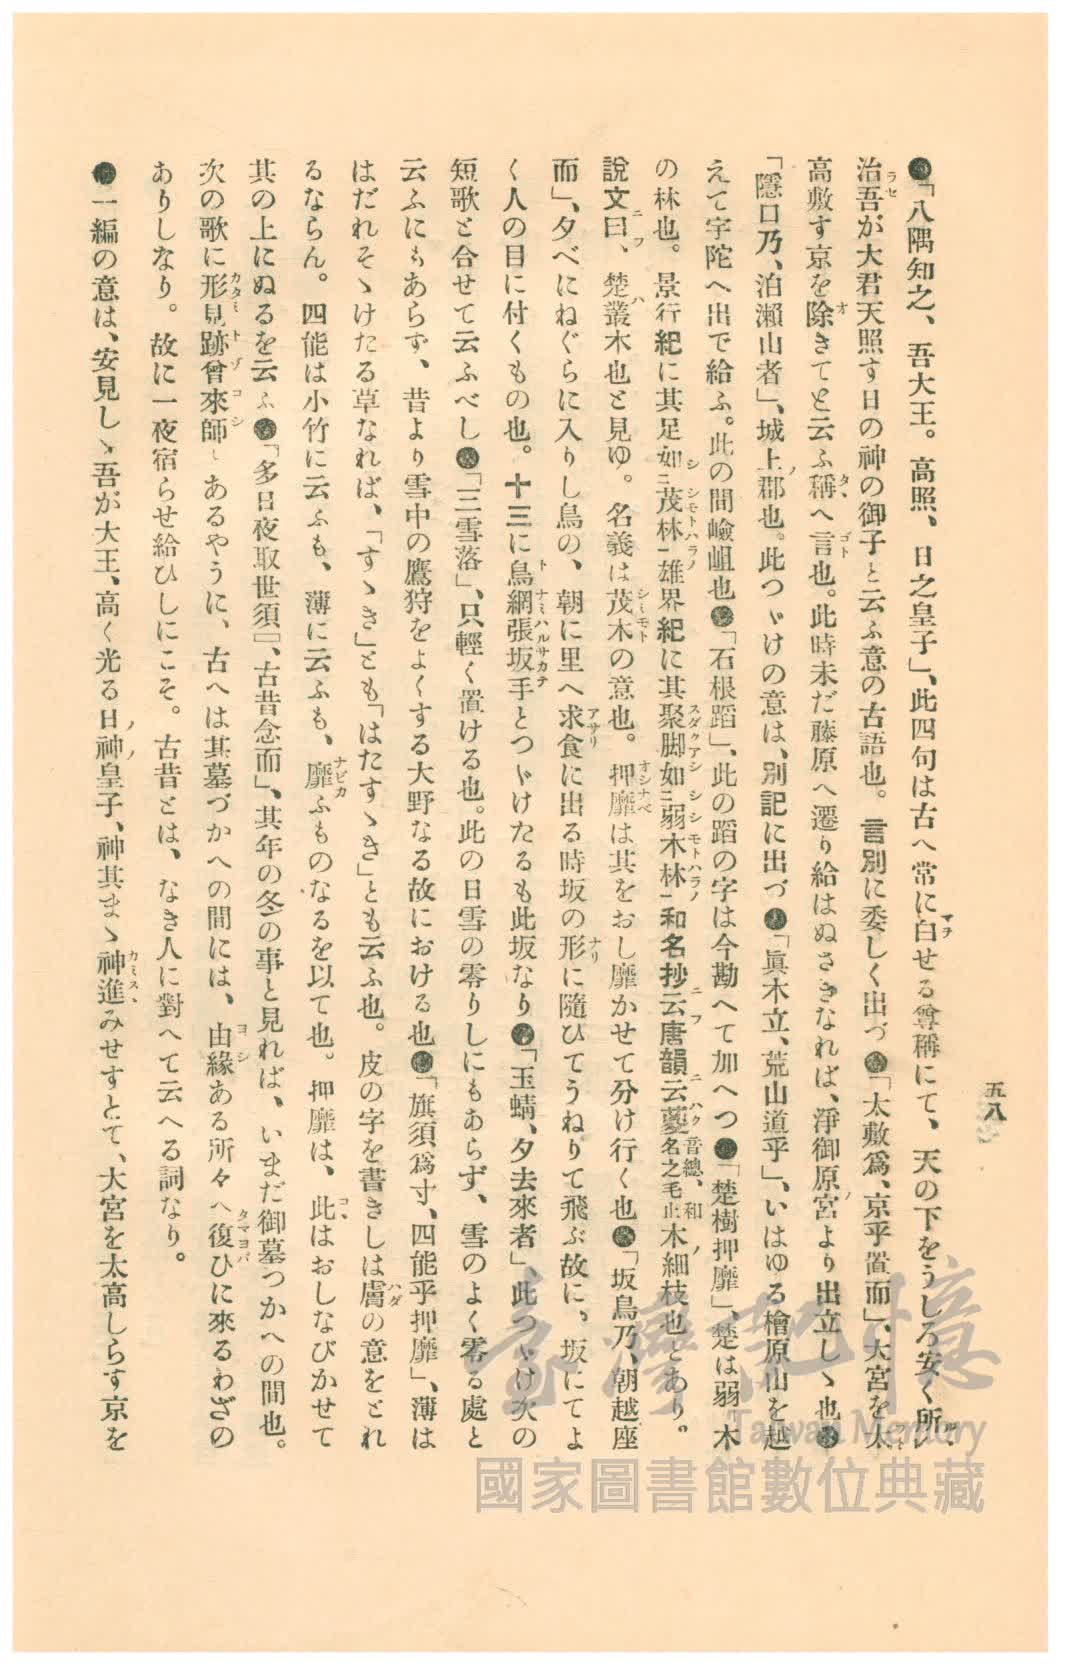 五八
●「八隅知之、吾大王。高照、日之皇子」、此四句は古へ常に白せる尊稱にて、天の下をうしろ安く所
治吾が大君天照す日の神の御子と云ふ意の古語也。言別に委しく出づ●「太敷爲、京乎置而」、大宮を太
高敷す京を除きてと云ふ稱へ言也。此時未だ藤原へ遷り給はぬさきなれば、淨御原宮より出立しゝ也●
「隱口乃、泊瀨山者」、城上郡也。此つゞけの意は、別記に出づ●「眞木立、荒山道乎」、いはゆる檜原山を越
えて宇陀へ出で給ふ。此の間嶮岨也●「石根蹈」、此の蹈の字は今勘へて加へつ●「楚樹押靡」、楚は弱木
の林也。景行紀に其足如茂林雄界紀に其聚脚如弱木林和名抄云唐韻云蔓音總、和名之毛止木細枝也とあり。
說文曰、楚叢木也と見ゆ。名義は茂木の意也。押靡は其をおし靡かせて分け行く也●「坂鳥乃、朝越座
而」、夕べにねぐらに入りし鳥の、朝に里へ求食に出る時坂の形に隨ひてうねりて飛ぶ故に、坂にてよ
く人の目に付くもの也。十三に鳥網張坂手とつゞけたるも此坂なり●「玉蜻、夕去來者」、此つゞけ次の
短歌と合せて云ふべし●「三雪落」、只輕く置ける也。此の日雪の零りしにもあらず、雪のよく零る處と
云ふにもあらず、昔より雪中の鷹狩をよくする大野なる故における也●「旗須爲寸、四能乎押靡」、薄は
はだれそゝけたる草なれば、「すゝき」とも「はたすゝき」とも云ふ也。皮の字を書きしは膚の意をとれ
るならん。四能は小竹に云ふも、薄に云ふも、靡ふものなるを以て也。押靡は、此はおしなびかせて
其の上にぬるを云ふ●「多日夜取世須」、古昔念而」、其年の冬の事と見れば、いまだ御墓つかへの間也。
次の歌に形見跡曾來師とあるやうに、古へは其墓づかへの間には、由緣ある所々へ復ひに來るわざの
ありしなり。故に一夜宿らせ給ひしにこそ。古昔とは、なき人に對へて云へる詞なり。
●一編の意は、安見しゝ吾が大王、高く光る日神皇子、神其まゝ神進みせすとて、大宮を太高しらす京を
臺灣記憶
Taiwan Memory
國家圖書館數位典藏